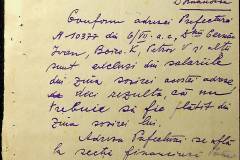 Domnule
Conform adresei Prefecturii
N 10377 din 6/VII a.c, Dnii
Ivan, Boris K, Petrov V și alții
sunt excluși din salariile
din ziua sosirii acestei adrese
deci rezultă, că nu
trebuie să fie plătit din
ziua sosirii lui.
Adresa Prefecturii se află
la secția financiară